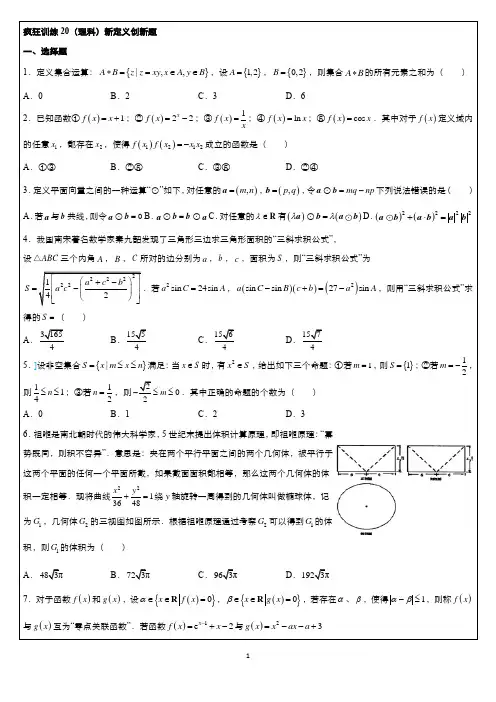 疯狂训练20（理科）新定义创新题
一、选择题
1．定义集合运算：A*B={z|z=xy,x∈A,y∈B}，设A={1,2}，B={0,2}，则集合A*B的所有元素之和为（ ）
A．0 B．2 C．3 D．6
2．已知函数①f(x)=x+1；②f(x)=2^x−2；③f(x)=1/x；④f(x)=ln x；⑤f(x)=cos x．其中对于f(x)定义域内
的任意x₁，都存在x₂，使得f(x₁)f(x₂)=−x₁x₂成立的函数是（ ）
A．①③ B．②⑤ C．③⑤ D．②④
3．定义平面向量之间的一种运算“⊙”如下，对任意的a=(m,n)，b=(p,q)，令a⊙b=mq−np下列说法错误的是（ ）
A．若a与b共线，则令a⊙b=0 B．a⊙b=b⊙a C．对任意的λ∈R有(λa)⊙b=λ(a⊙b) D．(a⊙b)²+(a·b)²=|a|²|b|²
4．我国南宋著名数学家秦九韶发现了三角形三边求三角形面积的“三斜求积公式”，
设△ABC三个内角A，B，C所对的边分别为a，b，c，面积为S，则“三斜求积公式”为
S=√(1/4[a²c²−((a²+c²−b²)/2)²])．若a²sin C=24sin A，a(sin C−sin B)(c+b)=(27−a²)sin A，则用“三斜求积公式”求
得的S=（ ）
A．3√165/4 B．15√5/4 C．15√6/4 D．15√7/4
5．]设非空集合S={x|m≤x≤n}满足：当x∈S时，有x²∈S，给出如下三个命题：①若m=1，则S={1}；②若m=−1/2，
则1/4≤n≤1；③若n=1/2，则−√2/2≤m≤0．其中正确的命题的个数为（ ）
A．0 B．1 C．2 D．3
6．祖暅是南北朝时代的伟大科学家，5世纪末提出体积计算原理，即祖暅原理：“幂
势既同，则积不容异”．意思是：夹在两个平行平面之间的两个几何体，被平行于
这两个平面的任何一个平面所截，如果截面面积都相等，那么这两个几何体的体
积一定相等．现将曲线x²/36+y²/48=1绕y轴旋转一周得到的几何体叫做椭球体，记
为G₁，几何体G₂的三视图如图所示．根据祖暅原理通过考察G₂可以得到G₁的体
积，则G₁的体积为（ ）
A．48√3π B．72√3π C．96√3π D．192√3π
7．对于函数f(x)和g(x)，设α∈{x∈R|f(x)=0}，β∈{x∈R|g(x)=0}，若存在α、β，使得|α−β|≤1，则称f(x)
与g(x)互为“零点关联函数”．若函数f(x)=e^(x−1)+x−2与g(x)=x²−ax−a+3
1